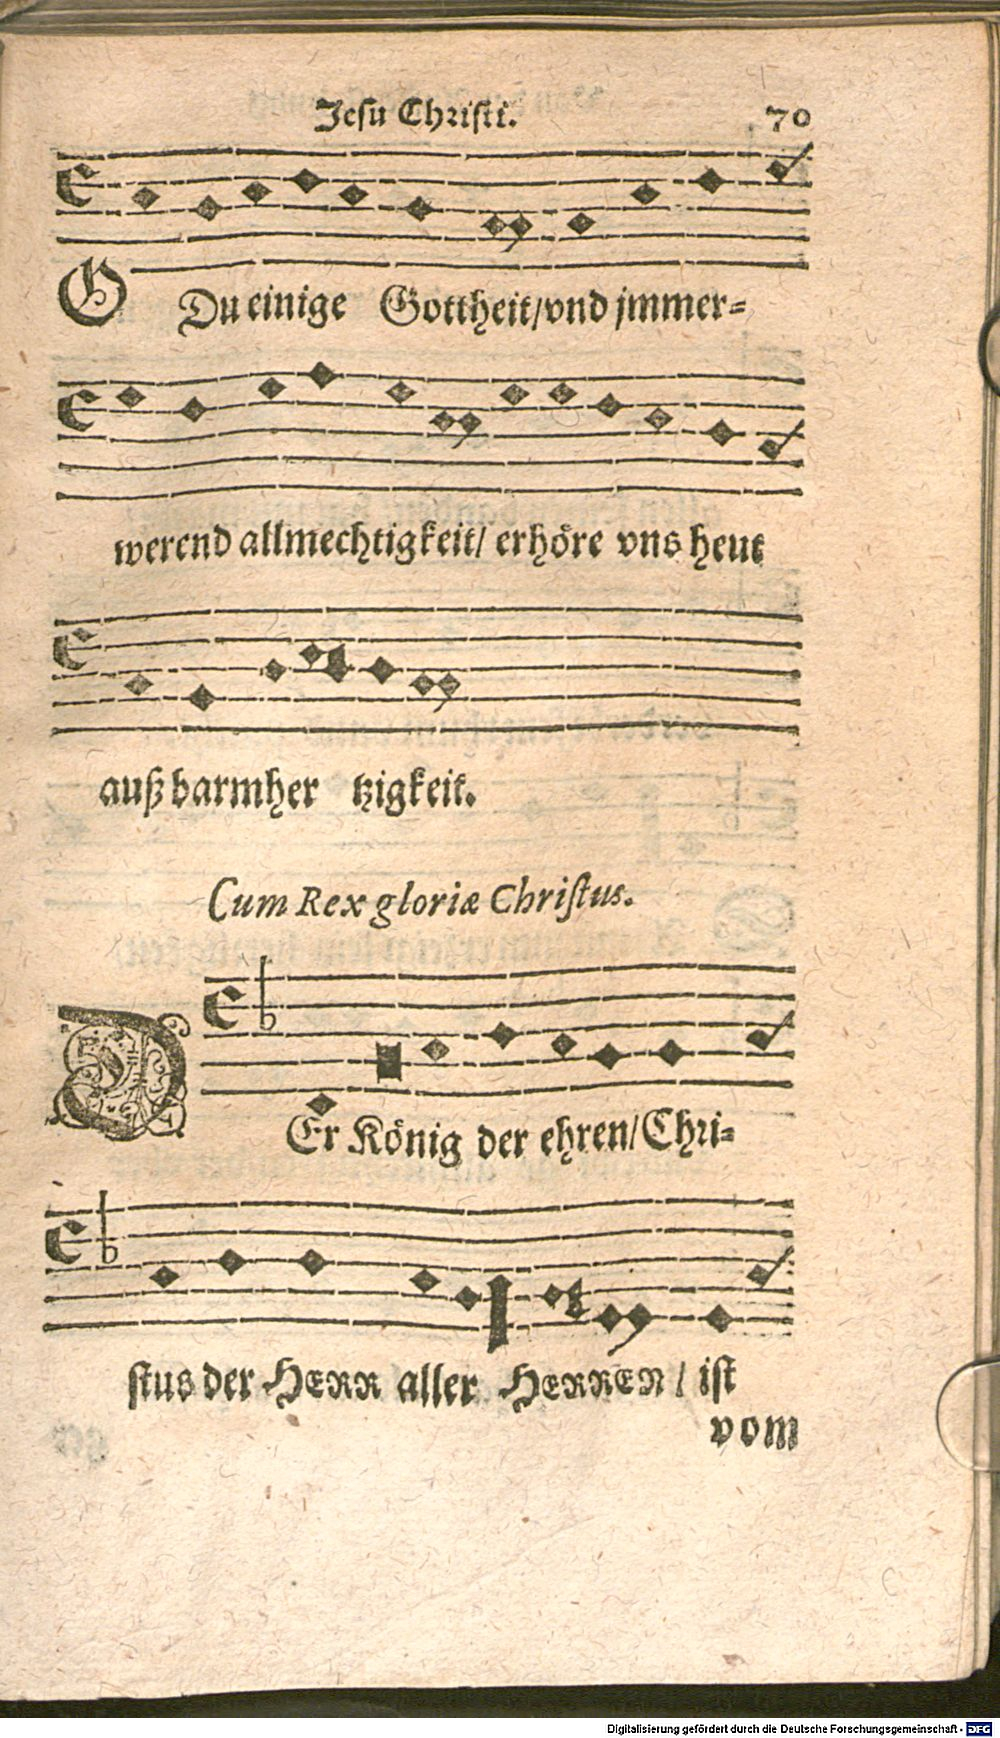 Jesu Christi. 70
O Du einige Gottheit/vnd jmmer-
werend allmechtigkeit/ erhöre vns heut
auß barmher tzigkeit.
Cum Rex gloriæ Christus.
DEr König der ehren/Chri-
stus der HERR aller HERREN/ ist
vom
Digitalisierung gefördert durch die Deutsche Forschungsgemeinschaft - DFG